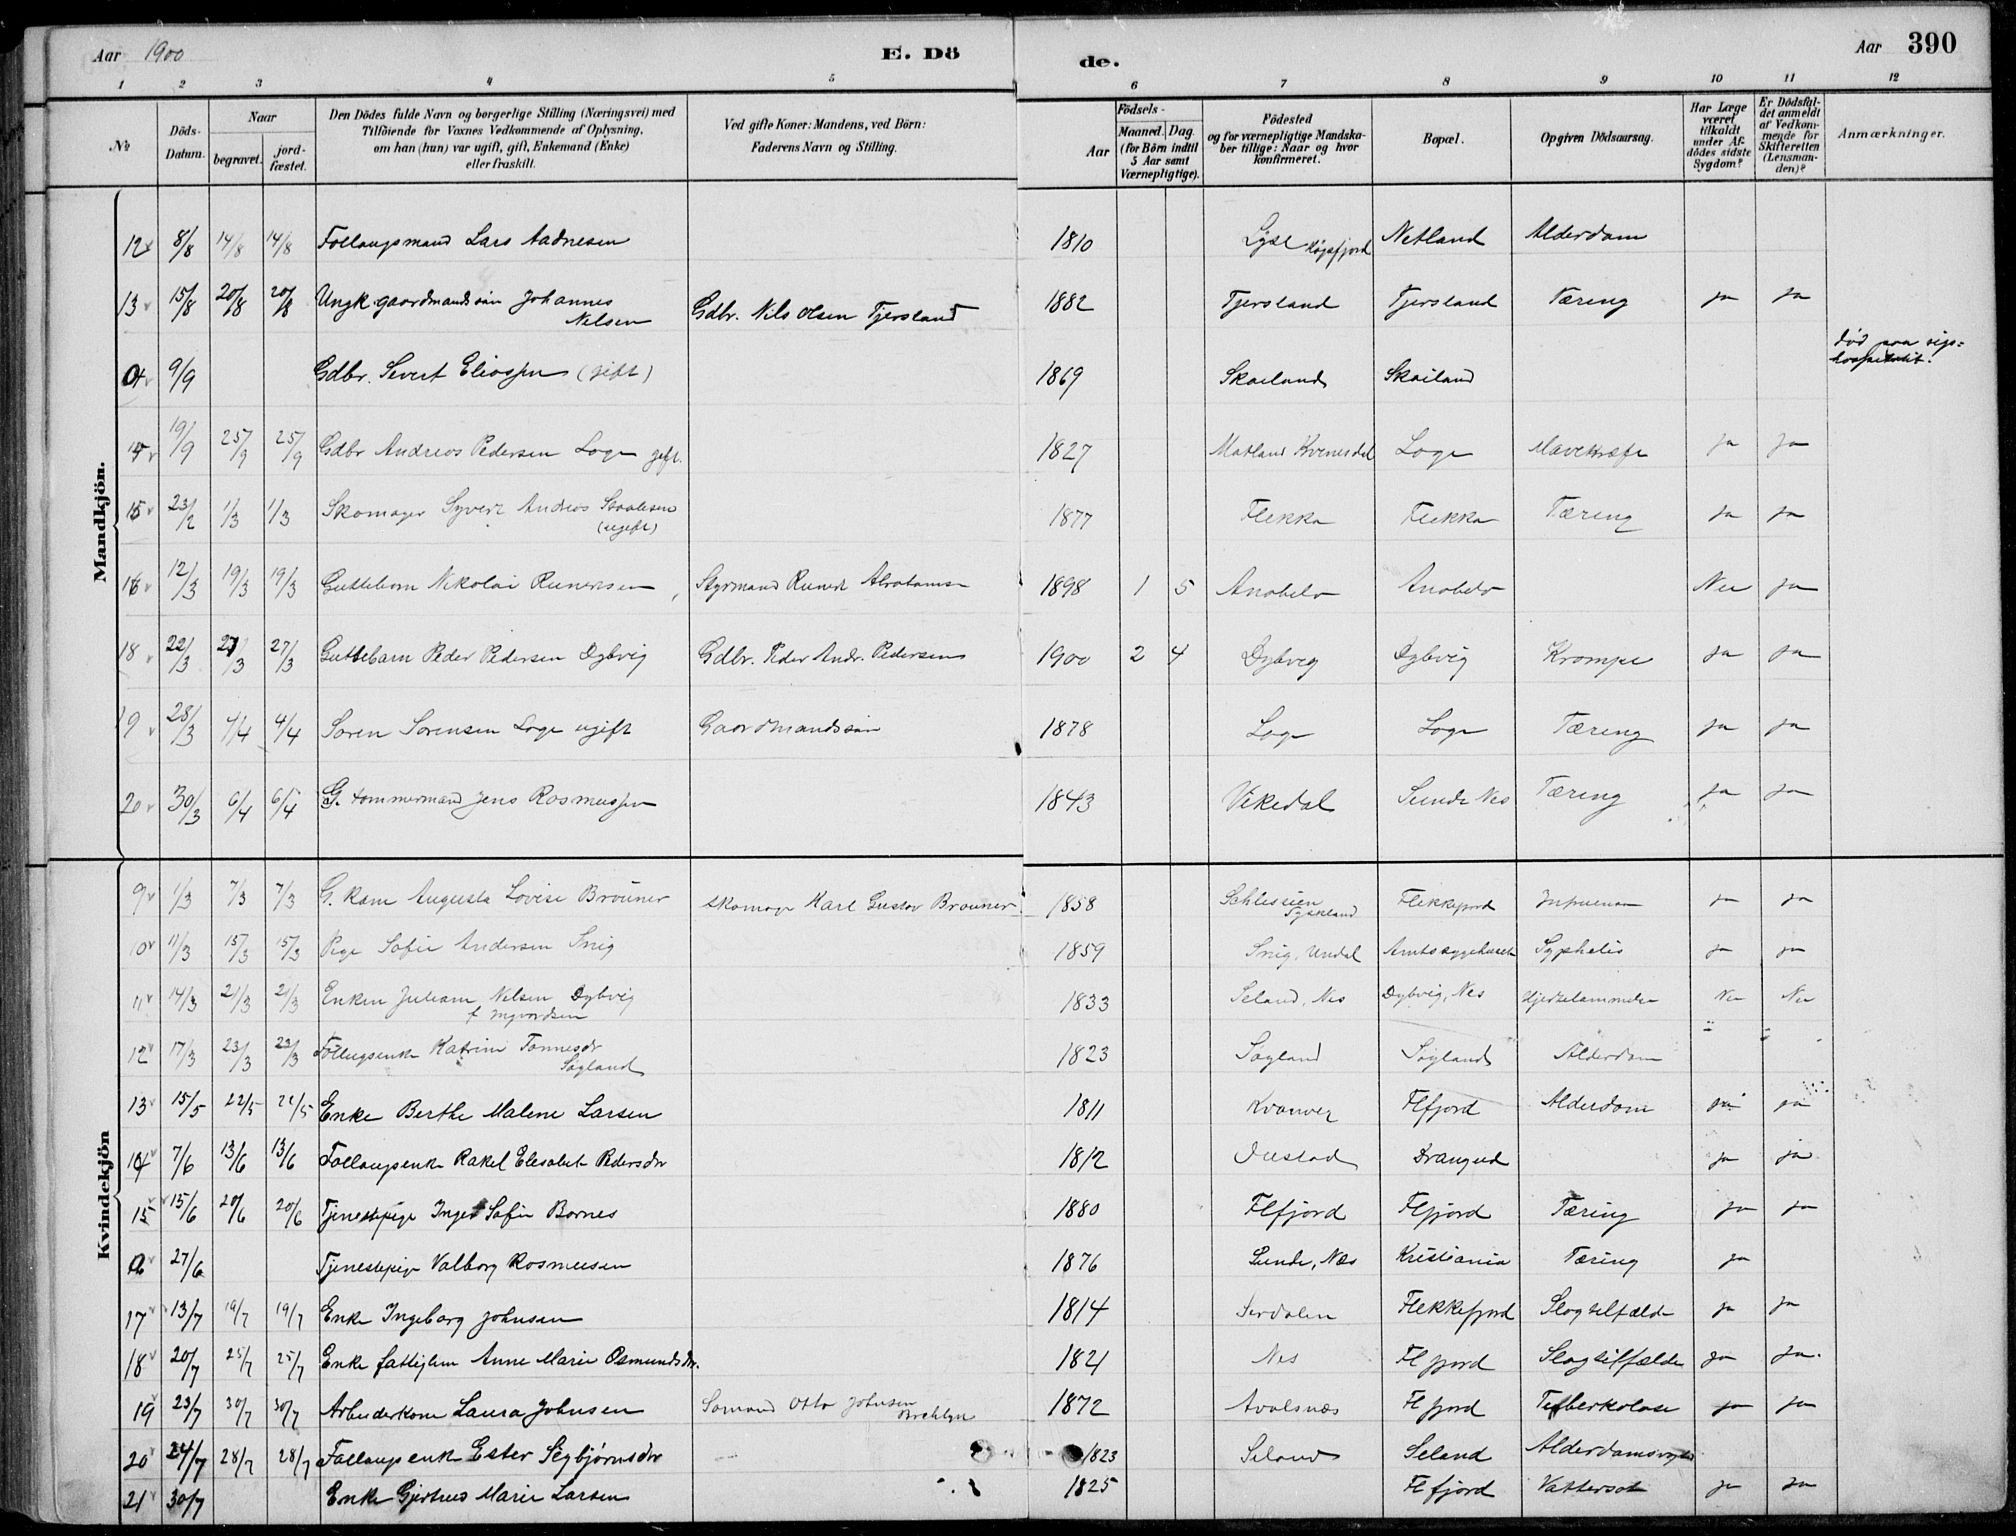 Aar 1900 E. Dö de. Aar 390
1 2 3 4 5 6 7 8 9 10 11 12
№ Döds-Datum. Naar begravet. jord-fæstet. Den Dödes fulde Navn og borgerlige Stilling (Næringsvei) med Tilföiende for Voxnes Vedkommende af Oplysning, om han (hun) var ugift, gift, Enkemand (Enke) eller fraskilt. Ved gifte Koner: Mandens, ved Börn: Faderens Navn og Stilling. Aar Födsels- Maaned. Dag. (for Börn indtil 5 Aar samt Værnepligtige). Födested og for værnepligtige Mandskaber tillige: Naar og hvor konfirmeret. Bopæl. Opgiven Dödsaarsag. Har Læge været tilkaldt under Afdödes sidste Sygdom? Er Dödsfaldet anmeldt af Vedkommende for Skifteretten (Lensmanden)? Anmærkninger.
Mandkjön.
12 8/8 14/8 14/8 Follaugsmand Lars Aadnesen 1810 Lyse Høgsfjord Netland Alderdom
13 15/8 20/8 20/8 Ungk. gaardmandssön Johannes Nelsen Gdbr. Nils Olsen Tjersland 1882 Tjersland Tjersland Tæring ja ja
9/9 Gdbr. Severt Eliassen (gift) 1869 Skailand Skailand død paa sigs=hospitalet.
19/9 25/9 25/9 Gdbr Andreas Pedersen Loge gift. 1827 Matland Kvinesdal Loge Mavekræft ja ja
15 23/2 1/3 1/3 Skomager Syvert Andreas Staalesen (ugift) 1877 Flekka Flekka Tæring ja ja
16 12/3 19/3 19/3 Guttebarn Nikolai Runertsen, Styrmand Runert Abrahamsen 1898 1 5 Anabelø Anabelø Nei ja
18 22/3 27/3 27/3 Guttebarn Peder Pedersen Dybvig Gdbr. Peder Andr. Pedersen 1900 2 4 Dybvig Dybvig Krampe ja ja
19 28/3 4/4 4/4 Søren Sørensen Loge ugift Gaardmandssøn 1878 Loge Loge Tæring ja ja
20 30/3 6/4 6/4 G. tømmermand Jens Rasmussen 1843 Vikedal Sunde Nes Tæring ja ja
Kvindekjön
9 1/3 7/3 7/3 G. kone Augusta Lovise Bröuner skomager Karl Gustav Brauner 1858 Schlesien Tyskland Flekkefjord Influensa ja ja
10 11/3 15/3 15/3 Pige Sofie Andersen Snig 1859 Snig, Undal Amtssygehuset Syphelis ja ja
11 14/3 21/3 21/3 Enken Juliane Nelsen Dybvig f Ingvardsen 1833 Seland, Nes Dybvig, Nes Hjertelammelse Nei Nei
12 17/3 23/3 23/3 Follugsenke Katrine Tønnesdr Søyland 1823 Søyland Søyland Alderdom " "
13 15/5 22/5 22/5 Enke Berthe Malene Larsen 1811 Kvanvig Flfjord Alderdom ja ja
14 7/6 13/6 13/6 Follaugsenke Rakel Elisabet Pedersdr 1812 Drangeid ja ja
15 15/6 20/6 20/6 Tjenestepige Inger Sofie Bornes 1880 Flfjord Flfjord Tæring ja ja
27/6 Tjenestepige Valborg Rasmussen 1876 Sunde, Næs Kristiania Tæring ja
17 13/7 19/7 19/7 Enke Ingeborg Johnsen 1814 Serdalen Flekkefjord Slagtilfælde ja ja
18 20/7 25/7 25/7 Enke fattiglem Anne Marie Osmundsdr. 1821 Nes Flfjord Slagtilfælde ja ja
19 23/7 30/7 30/7 Arbeiderkone Laura Johnsen Sømand Otto Johnsen Brooklyn 1872 Avalsnæs Flfjord Tuberkolose ja ja
20 24/7 28/7 28/7 Follaugsenke Ester Sigbjørnsdr — 1823 Seland Seland Alderdomssvaghed
21 30/7 Enke Gjertrud Marie Larsen 1825 Flfjord Vattersot ja ja